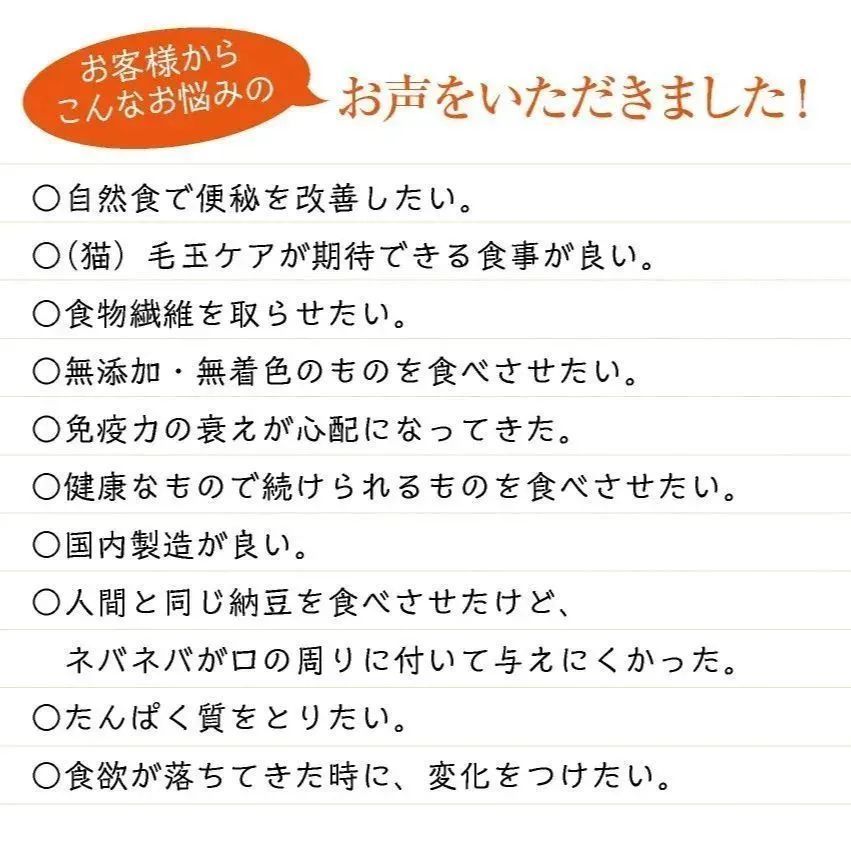 お客様から
こんなお悩みの
お声をいただきました！
〇自然食で便秘を改善したい。
〇（猫）毛玉ケアが期待できる食事が良い。
〇食物繊維を取らせたい。
〇無添加・無着色のものを食べさせたい。
〇免疫力の衰えが心配になってきた。
〇健康なもので続けられるものを食べさせたい。
〇国内製造が良い。
〇人間と同じ納豆を食べさせたけど、
ネバネバが口の周りに付いて与えにくかった。
〇たんぱく質をとりたい。
〇食欲が落ちてきた時に、変化をつけたい。